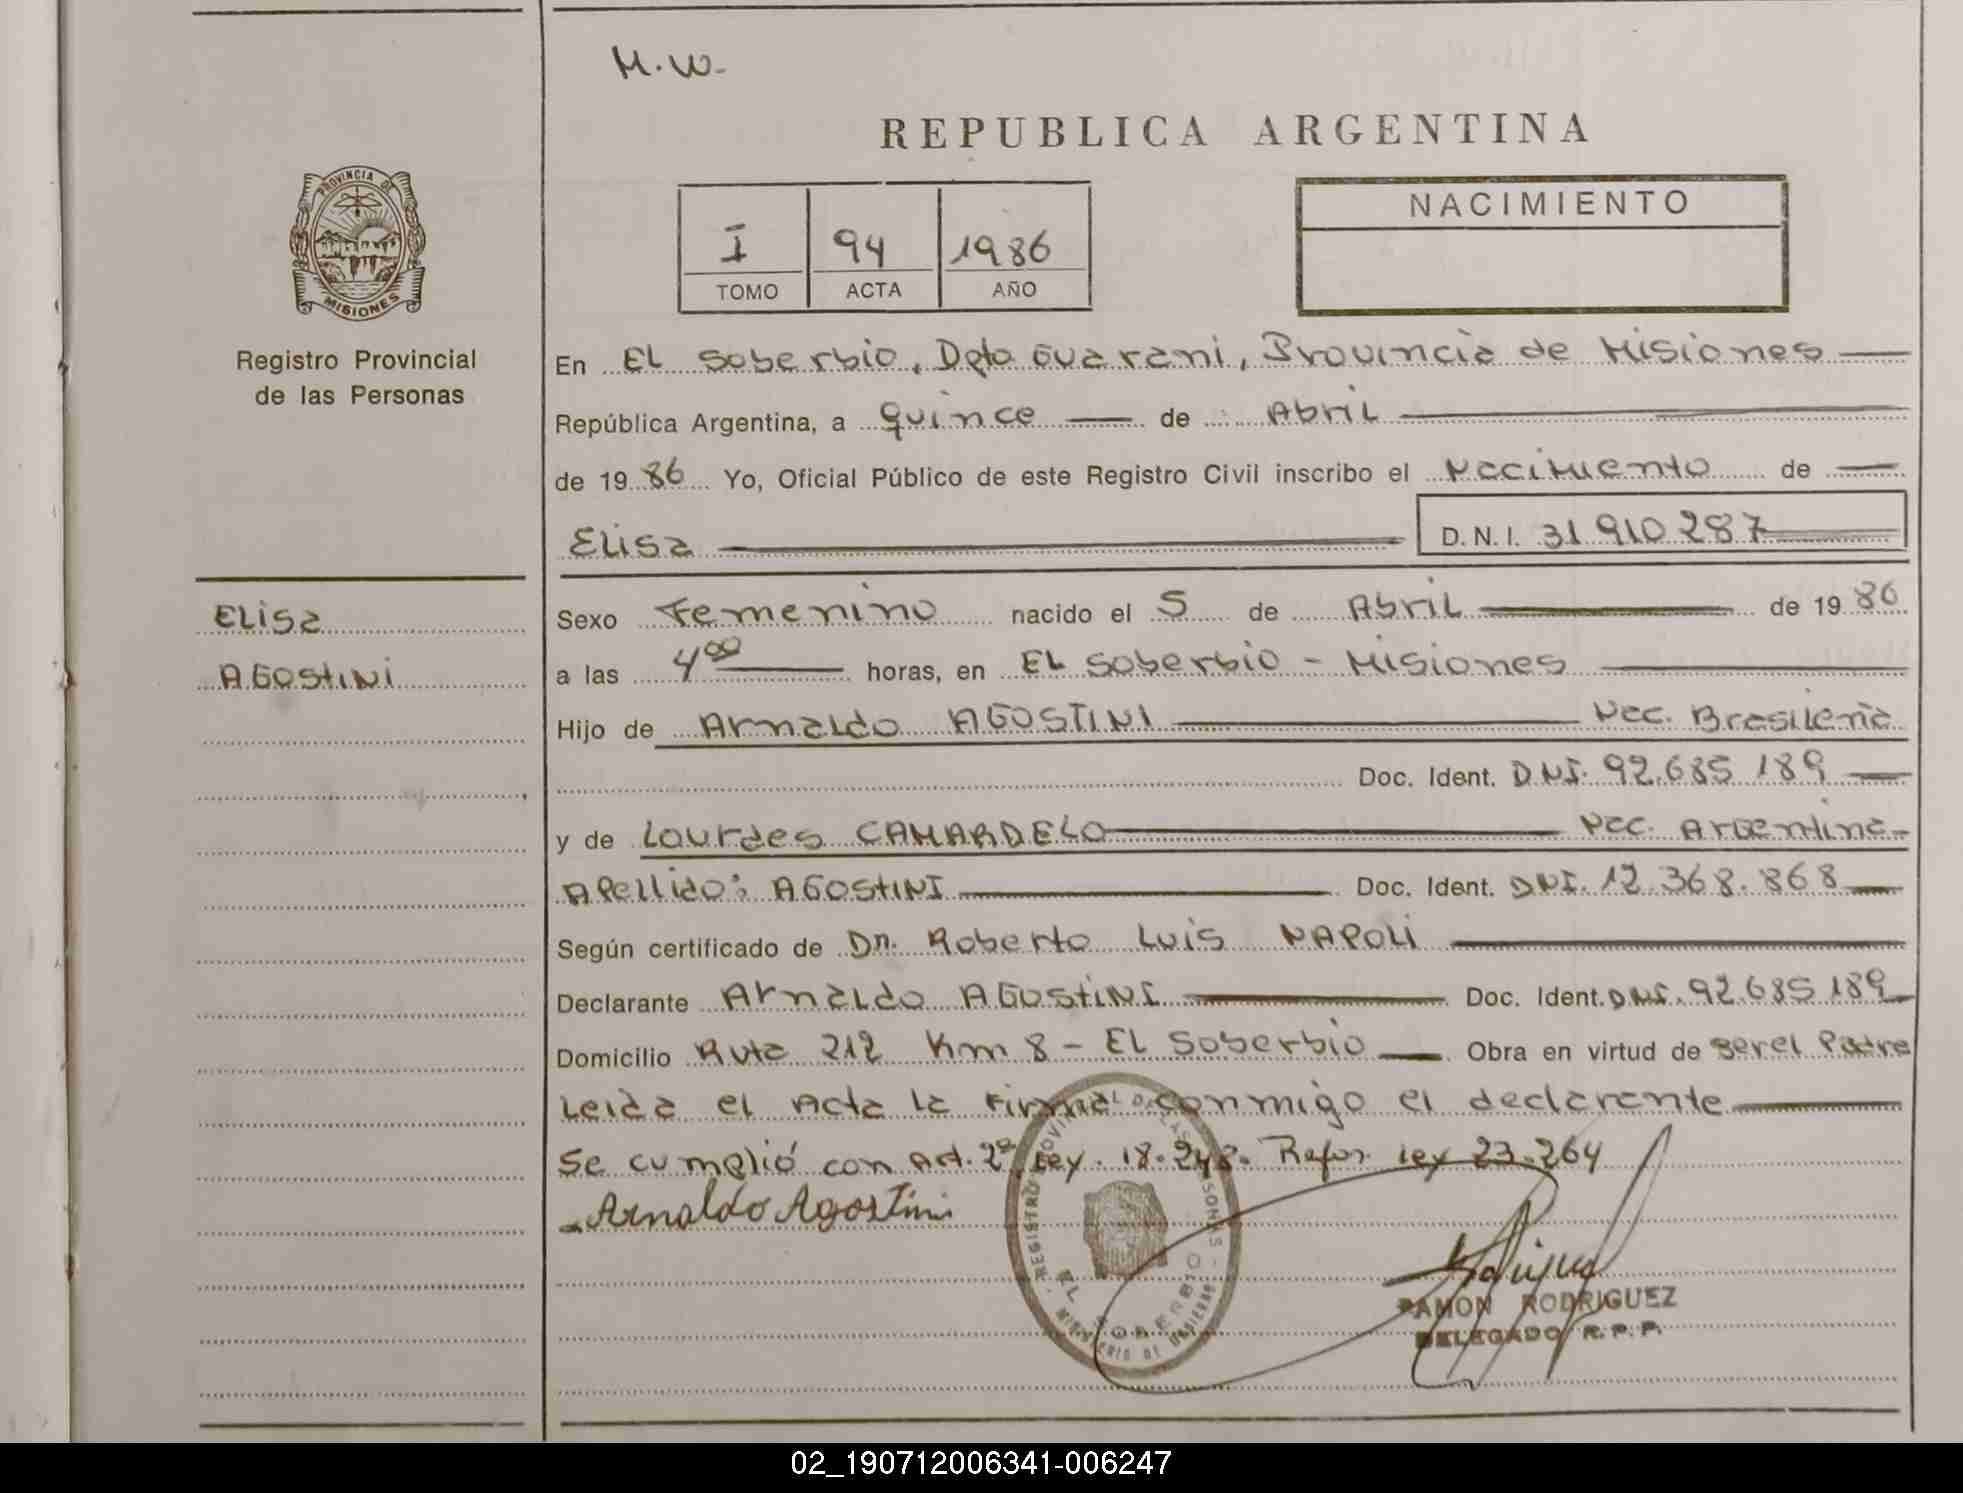 M.W.
REPUBLICA ARGENTINA
PROVINCIA DE
MISIONES
Registro Provincial
de las Personas
I 94 1986
TOMO ACTA AÑO
NACIMIENTO
En EL Soberbio, Dpto Guarani, Provincia de Misiones
República Argentina, a quince de Abril
de 1986 Yo, Oficial Público de este Registro Civil inscribo el Nacimiento de
Elisa D.N.I. 31 910 287
Elisa
AGOSTINI
Sexo Femenino nacido el 5 de Abril de 1986
a las 4 00 horas, en EL Soberbio - Misiones
Hijo de Arnaldo AGOSTINI Nac. Brasileña
Doc. Ident. DNI. 92.685 189
y de Lourdes CAMARDELO Nac. Argentina
Apellido: AGOSTINI Doc. Ident. DNI. 12 368.868
Según certificado de Dn. Roberto Luis NAPOLI
Declarante Arnaldo AGOSTINI Doc. Ident. DNI. 92.685 189
Domicilio Ruta 212 Km 8 - EL Soberbio Obra en virtud de ser el Padre
Leida el Acta la firma conmigo el declarante
Se cumplió con Art. 2º Ley. 18.248. Refor. ley 23.264
Arnaldo Agostini
EL SOBERBIO
MINISTERIO DE GOBIERNO
RAMON RODRIGUEZ
DELEGADO R.P.P.
02_190712006341-006247